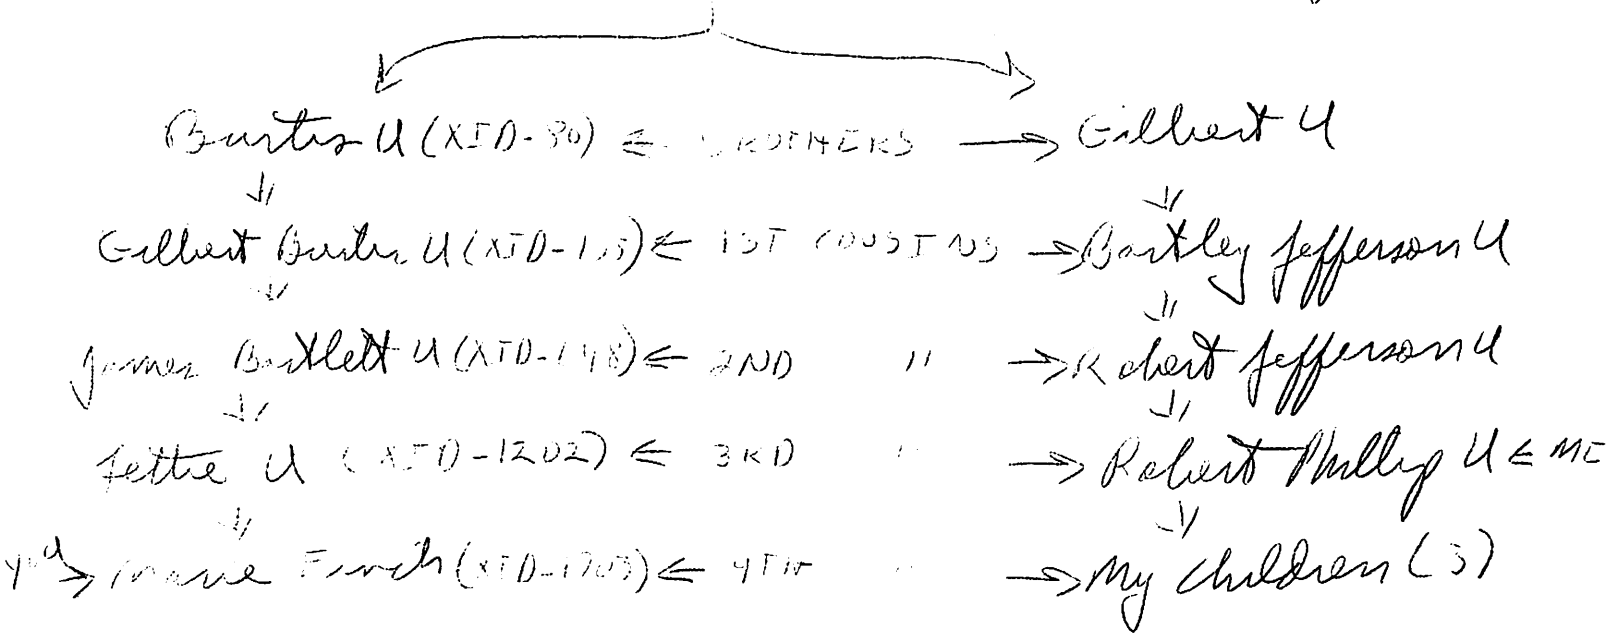 Burtis U (XID-80) ⇐ BROTHERS → Gilbert U
Gilbert Burtis U (XID-) ⇐ 1ST COUSINS → Bartley Jefferson U
James Bartlett U (XID-148) ⇐ 2ND " → Robert Jefferson U
Jettie U (XID-1202) ⇐ 3RD " → Robert Phillip U ⇐ ME
→ Marie Finch (XID-1203) ⇐ 4TH " → My children (3)